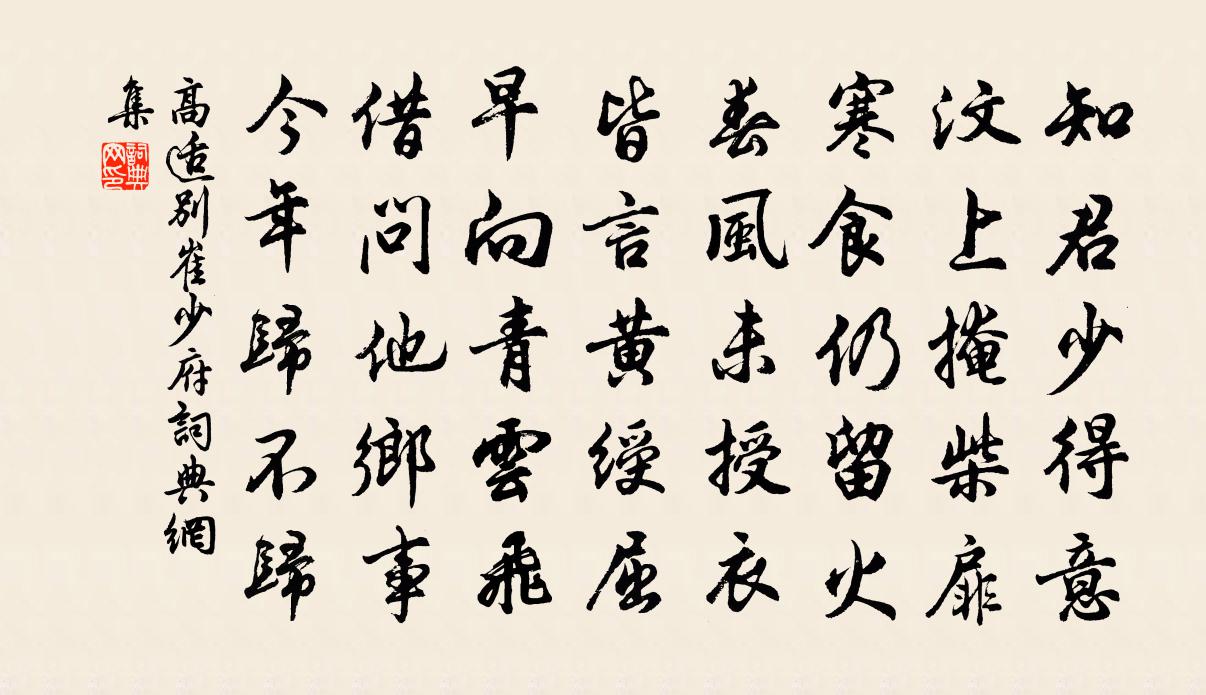 知君少得意
汶上掩柴扉
寒食仍留火
春風未授衣
皆言黃綬屈
早向青雲飛
借問他鄉事
今年歸不歸
高适別崔少府詞典網
集
詞典
网印